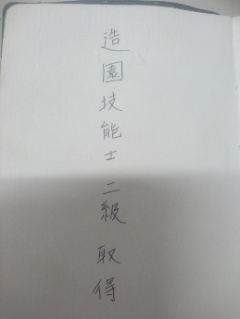 造園技能士二級取得